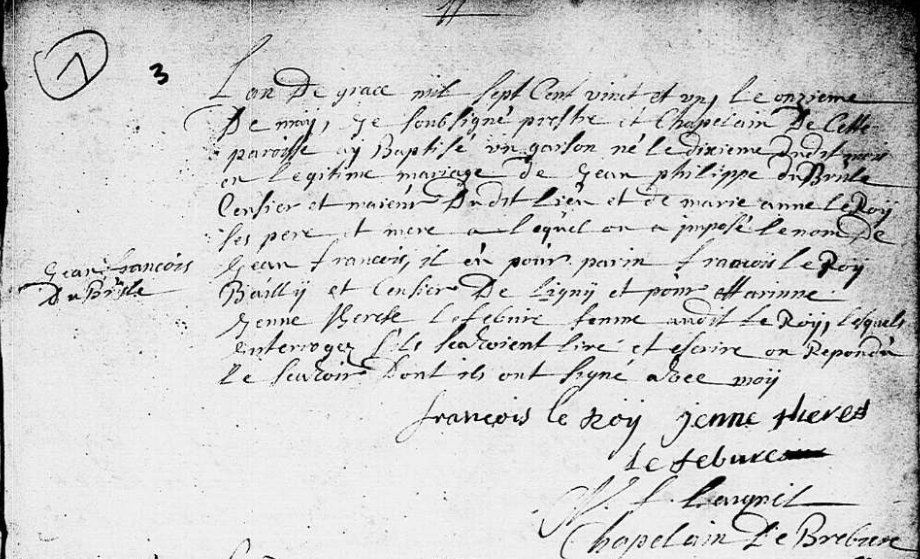 11
1
3
L'an De grace mil sept Cent vinct et un, le onzieme
De may, je soubsigné prestre et Chapelain De Cette
paroisse ay Baptisé un garson né le dixieme Dudit mois
en legitime mariage de Jean philippe du Brüle
Censier et maieur Dudit lieu et de marie anne le Roÿ
ses pere et mere a lequel on a imposé le nom De
Jean francois, il eu pour parin francois le Roÿ
Baillÿ et Censier De Lignÿ et pour Marinne
Jenne therese Lefebure femme audit le Roÿ, lesquels
interrogez s'ils scavoient lire et escrire on Repondu
le scavoir Dont ils ont signé avec moÿ
Jean francois
Du Brüle
francois le Roÿ jenne theres
le febure
Chapelain De Brebiere